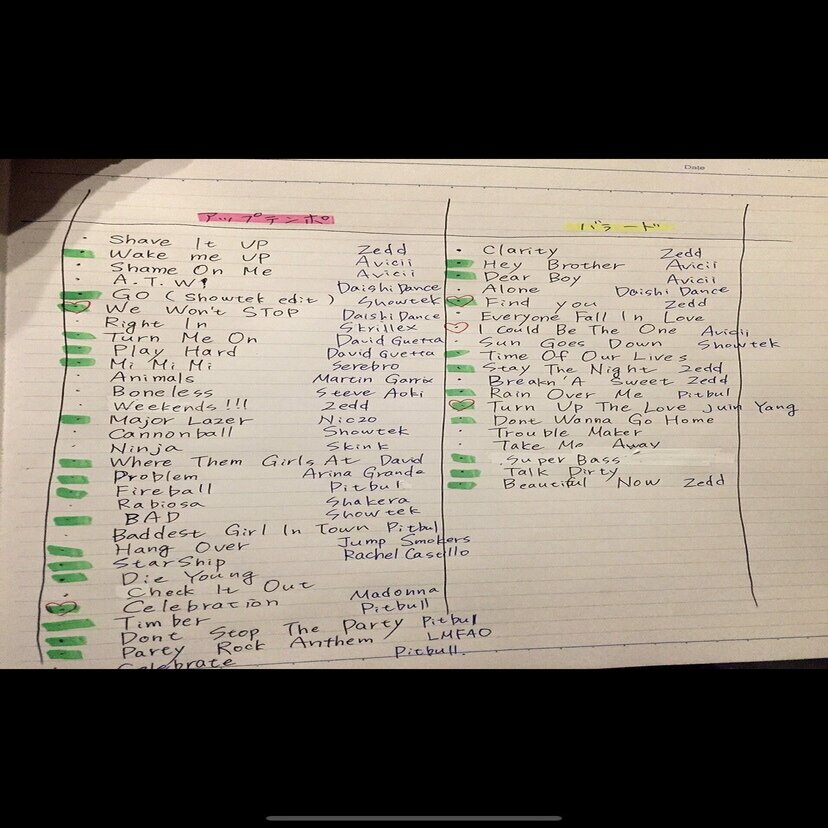 Date
アップテンポ
Shave It UP Zedd
Wake me UP Avicii
Shame On Me Avicii
A.T.W! Daishi Dance
GO (Showtek edit) Showtek
We Won't STOP Daishi Dance
Right In Skrillex
Turn Me On David Guetta
Play Hard David Guetta
Mi Mi Mi Serebro
Animals Martin Garrix
Boneless Steve Aoki
Weekends!!! Zedd
Major Lazer Nic2o
Cannonball Showtek
Ninja Skink
Where Them Girls At David
Problem Arina Grande
Fireball Pitbul
Rabiosa Shakera
BAD Showtek
Baddest Girl In Town Pitbul
Hang Over Jump Smokers
StarShip Rachel Castillo
Die Young
Check It Out
Celebration Madonna
Timber Pitbull
Dont Stop The Party Pitbul
Party Rock Anthem LMFAO
Celebrate Pitbull.
バラード
Clarity Zedd
Hey Brother Avicii
Dear Boy Avicii
Alone Daishi Dance
Find you Zedd
Everyone Fall In Love
I Could Be The One Avicii
Sun Goes Down Showtek
Time Of Our Lives
Stay The Night Zedd
Breakn'A Sweet Zedd
Rain Over Me Pitbul
Turn Up The Love Juin Yang
Dont Wanna Go Home
Trouble Maker
Take Me Away
Super Bass
Talk Dirty
Beautiful Now Zedd